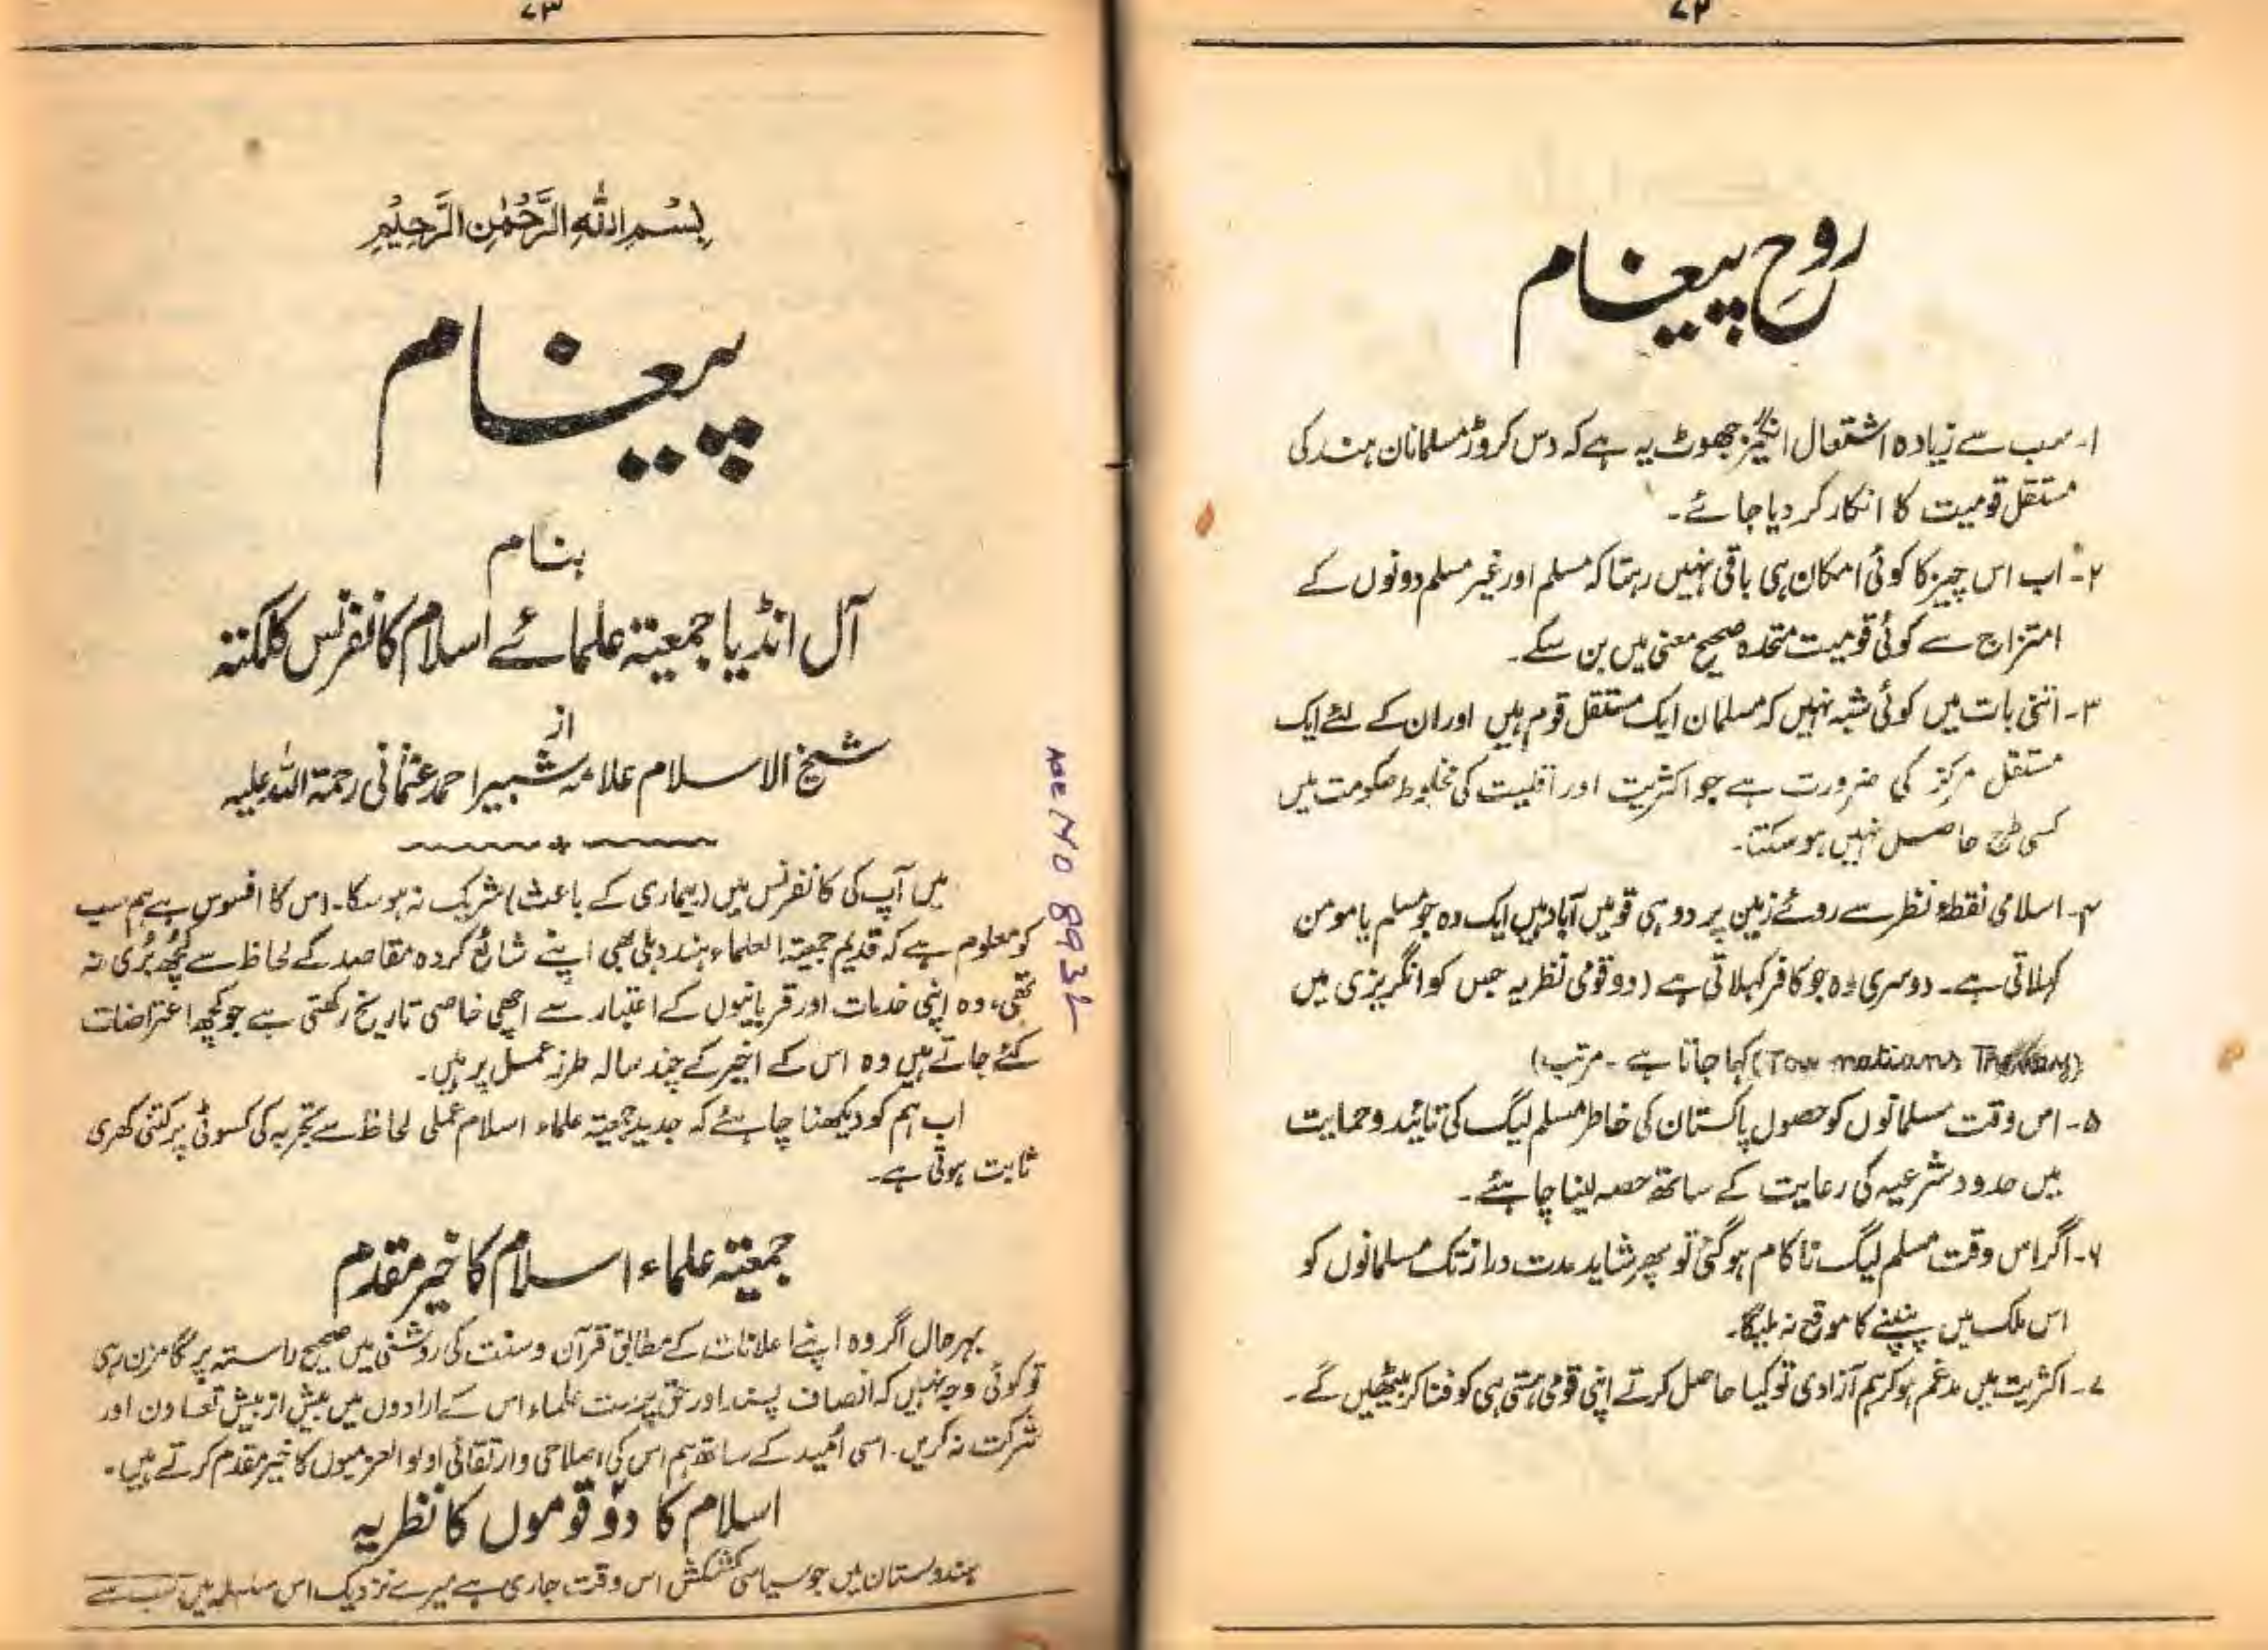 ۷۲
روح پیغام
۱- سب سے زیادہ اشتعال انگیز جھوٹ یہ ہے کہ دس کروڑ مسلمانان ہند کی
مستقل قومیت کا انکار کر دیا جائے۔
۲- اب اس چیز کا کوئی امکان ہی باقی نہیں رہتا کہ مسلم اور غیر مسلم دونوں کے
امتزاج سے کوئی قومیت متحدہ صحیح معنی میں بن سکے۔
۳- اتنی بات میں کوئی شبہ نہیں کہ مسلمان ایک مستقل قوم ہیں اور ان کے لئے ایک
مستقل مرکز کی ضرورت ہے جو اکثریت اور اقلیت کی مخلوط حکومت میں
کسی طرح حاصل نہیں ہو سکتا۔
۴- اسلامی نقطۂ نظر سے روئے زمین پر دو ہی قومیں آباد ہیں ایک وہ جو مسلم یا مومن
کہلاتی ہے۔ دوسری وہ جو کافر کہلاتی ہے (دو قومی نظریہ جس کو انگریزی میں
(Tow nations Theory) کہا جاتا ہے - مرتب)
۵- اس وقت مسلمانوں کو حصول پاکستان کی خاطر مسلم لیگ کی تائید و حمایت
میں حدود شرعیہ کی رعایت کے ساتھ حصہ لینا چاہئے۔
۶- اگر اس وقت مسلم لیگ ناکام ہو گئی تو پھر شاید مدت دراز تک مسلمانوں کو
اس ملک میں پنپنے کا موقع نہ ملیگا۔
۷- اکثریت میں مدغم ہو کر ہم آزادی تو کیا حاصل کرتے اپنی قومی ہستی ہی کو فنا کر بیٹھیں گے۔
۷۳
بِسْمِ اللّٰهِ الرَّحْمٰنِ الرَّحِيْمِ
پیغام
بنام
آل انڈیا جمعیتہ علمائے اسلام کانفرنس کلکتہ
از
شیخ الاسلام علامہ شبیر احمد عثمانی رحمۃ اللہ علیہ
میں آپ کی کانفرنس میں (بیماری کے باعث) شریک نہ ہو سکا۔ اس کا افسوس ہے ہم سب
کو معلوم ہے کہ قدیم جمعیتہ العلماء ہند دہلی بھی اپنے شائع کردہ مقاصد کے لحاظ سے کچھ بُری نہ
تھی، وہ اپنی خدمات اور قربانیوں کے اعتبار سے اچھی خاصی تاریخ رکھتی ہے جو کچھ اعتراضات
کئے جاتے ہیں وہ اس کے اخیر کے چند سالہ طرز عمل پر ہیں۔
اب ہم کو دیکھنا چاہئے کہ جدید جمعیتہ علماء اسلام عملی لحاظ سے تجربہ کی کسوٹی پر کتنی کھری
ثابت ہوتی ہے۔
جمعیتہ علماء اسلام کا خیر مقدم
بہرحال اگر وہ اپنے اعلانات کے مطابق قرآن و سنت کی روشنی میں صحیح راستہ پر گامزن رہی
تو کوئی وجہ نہیں کہ انصاف پسند اور حق پرست علماء اس کے ارادوں میں بیش از بیش تعاون اور
شرکت نہ کریں۔ اسی اُمید کے ساتھ ہم اس کی اصلاحی و ارتقائی اولوالعزمیوں کا خیر مقدم کرتے ہیں۔
اسلام کا دو قوموں کا نظریہ
ہندوستان میں جو سیاسی کشمکش اس وقت جاری ہے میرے نزدیک اس سلسلہ میں سب سے
Acc NO 8932